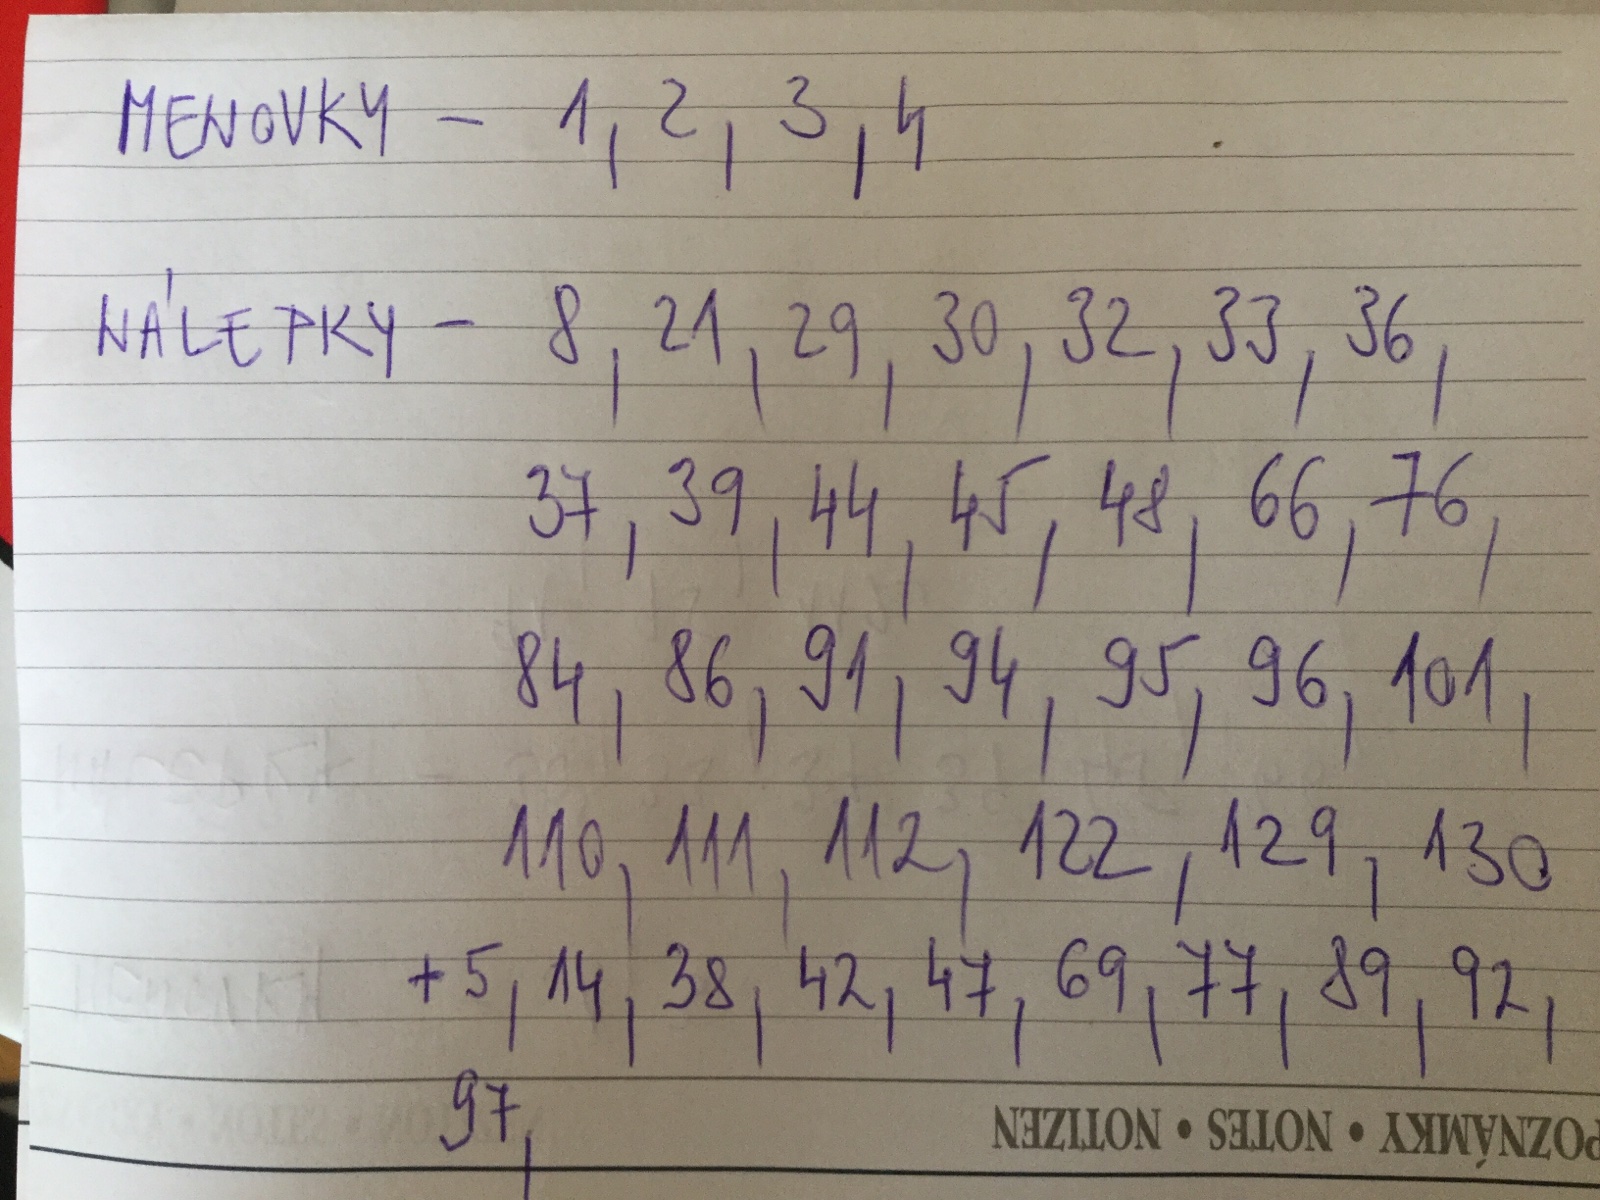 MENOVKY - 1, 2, 3, 4
NÁLEPKY - 8, 21, 29, 30, 32, 33, 36,
37, 39, 44, 45, 48, 66, 76,
84, 86, 91, 94, 95, 96, 101,
110, 111, 112, 122, 129, 130
+ 5, 14, 38, 42, 47, 69, 77, 89, 92,
97,
POZNÁMKY • NOTES • NOTIZEN